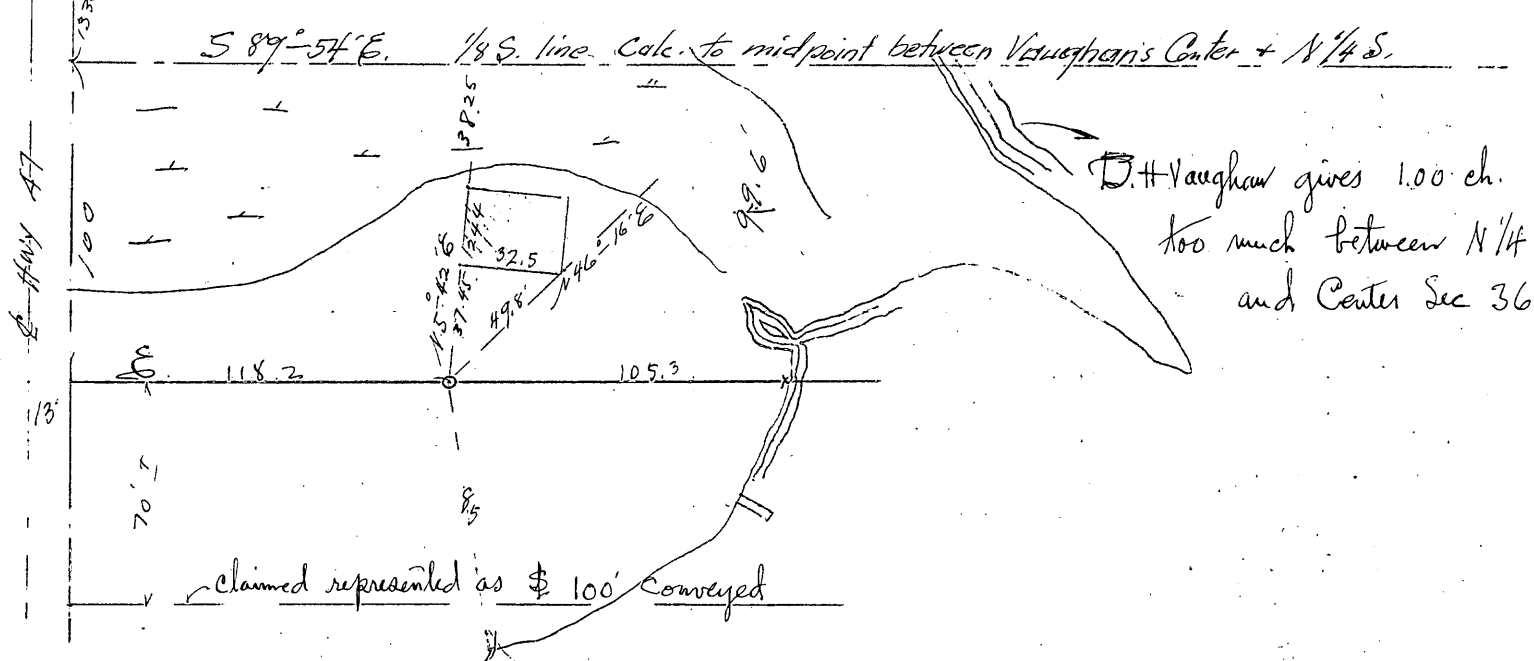 S 89°-54' E. 1/8 S. line Calc. to midpoint between Vaughan's Center + N 1/4 S.
138.25
99.6'
D.H Vaughan gives 1.00 ch.
too much between N 1/4
and Center Sec 36
℄ Hwy 47
100
N.5°-42' E
37.45
32.5
49.8'
N 46°-16' E
E. 118.2 105.3
70' ±
85
Claimed represented as 100' Conveyed